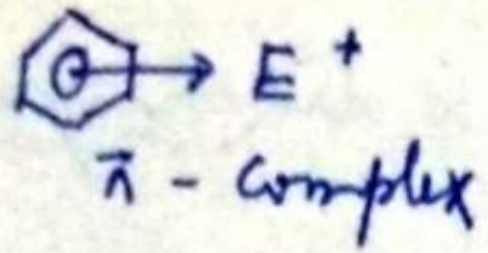 E +
π - complex